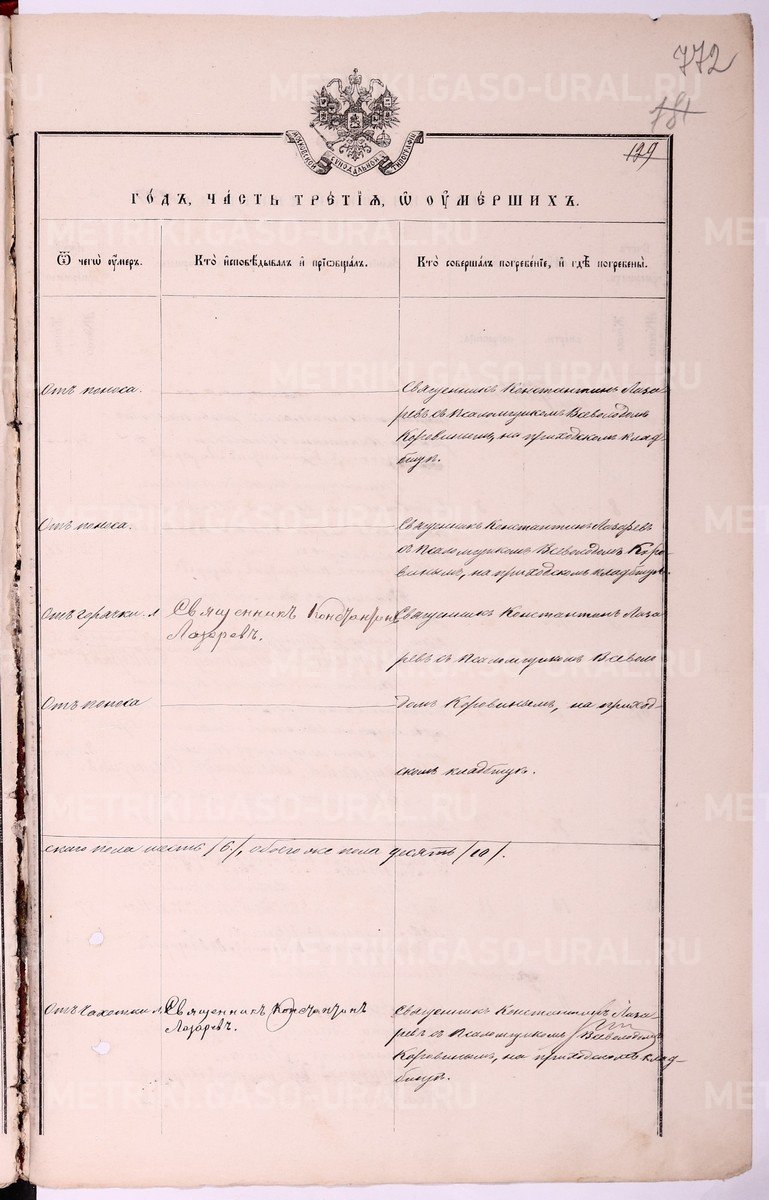 772
781
129
МОСКОВСКОЙ СѴНОДАЛЬНОЙ ТИПОГРАФІИ
ГО́ДЪ, ЧА́СТЬ ТРЕ́ТІЯ, Ѽ ОУ҆МЕ́РШИХЪ.
Ѿ чегѡ̀ оу҆́меръ.
Кто̀ и҆сповѣ́дывалъ и҆ прїѡбща́лъ.
Кто̀ соверша́лъ погребе́нїе, и҆ гдѣ̀ погребены̀.
Отъ поноса.
Священникъ Константинъ Лаза-
ревъ съ Псаломщикомъ Всеволодомъ
Коровинымъ, на приходскомъ клад-
бищѣ.
Отъ поноса.
Священникъ Константинъ Лазаревъ
съ Псаломщикомъ Всеволодомъ Коро-
винымъ, на приходскомъ кладбищѣ.
Отъ горячки.
Священникъ Константинъ
Лазаревъ.
Священникъ Константинъ Лаза-
ревъ съ Псаломщикомъ Всеволо-
Отъ поноса
домъ Коровинымъ, на приход-
скомъ кладбищѣ.
скаго пола шесть /6/, обоего же пола десять /10/.
Отъ чахотки
Священникъ Константинъ
Лазаревъ.
Священникъ Константинъ Лаза-
ревъ съ Псаломщикомъ Всеволодомъ
Коровинымъ, на приходскомъ клад-
бищѣ.
METRIKI.GASO-URAL.RU